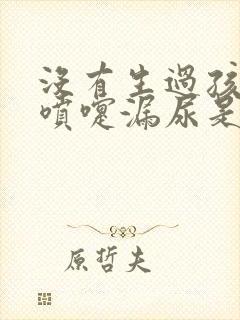 沒有生過孩
噴嚏漏尿是
原哲夫